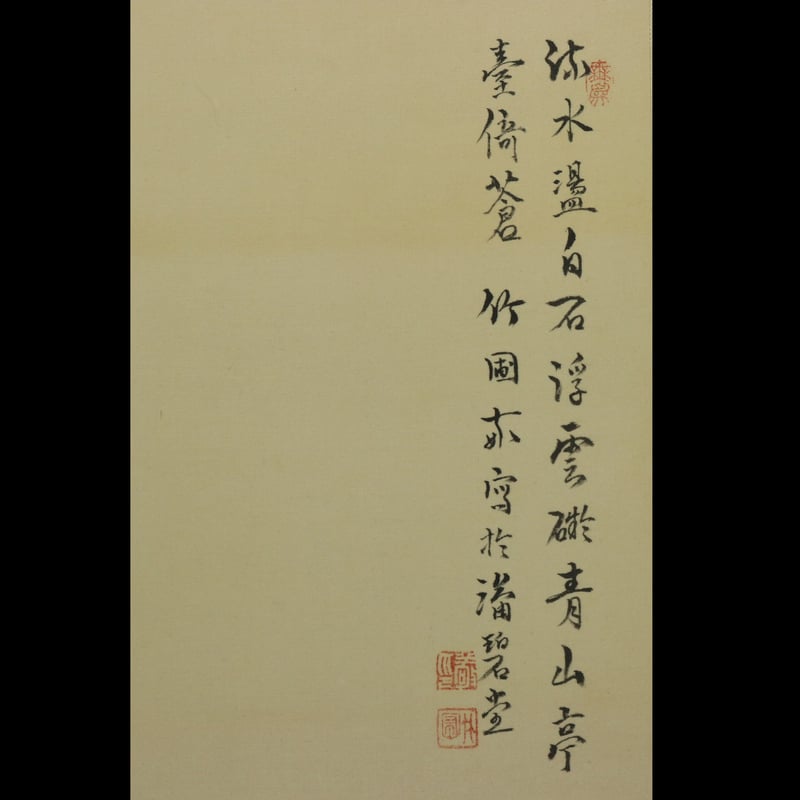 流水盪白石浮雲礙青山亭
臺倚蒼 竹圃寫於潘碧堂
竹圃